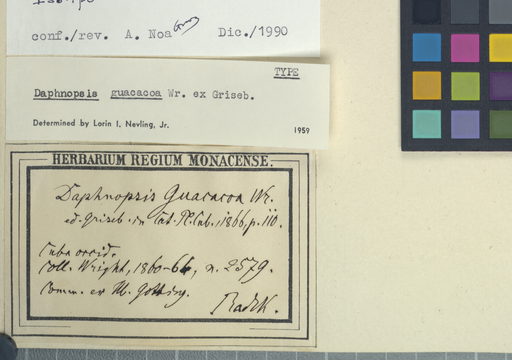 Isotipo
conf./rev. A. Noa Dic./1990
TYPE
Daphnopsis guacacoa Wr. ex Griseb.
Determined by Lorin I. Nevling, Jr. 1959
HERBARIUM REGIUM MONACENSE.
Daphnopsis Guacacoa Wr.
ed. Griseb. in Cat. Pl. Cub., 1866, p. 110.
Cuba occid.
Coll. Wright, 1860-64, n. 2579.
Comm. ex Hb. Götting.
Radlk.